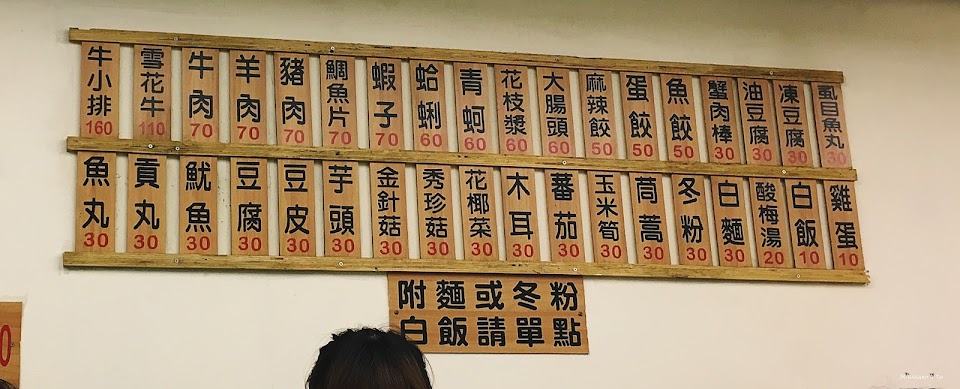 牛小排 160
雪花牛 110
牛肉 70
羊肉 70
豬肉 70
鯛魚片 70
蝦子 70
蛤蜊 60
青蚵 60
花枝漿 60
大腸頭 60
麻辣餃 50
蛋餃 50
魚餃 50
蟹肉棒 30
油豆腐 30
凍豆腐 30
虱目魚丸 30
魚丸 30
貢丸 30
魷魚 30
豆腐 30
豆皮 30
芋頭 30
金針菇 30
秀珍菇 30
花椰菜 30
木耳 30
蕃茄 30
玉米筍 30
茼蒿 30
冬粉 30
白麵 30
酸梅湯 20
白飯 10
雞蛋 10
附麵或冬粉
白飯請單點